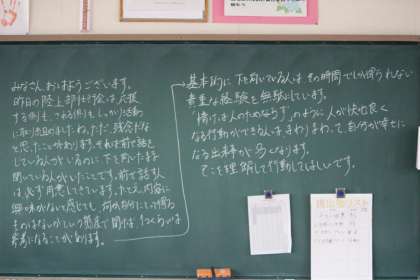 みなさん、おはようございます。
昨日の陸上部壮行会は、応援
する側も、される側も、しっかり活動
に取り組めましたね。ただ、残念だな
と思ったことがあります。それは前で話を
している人がいるのに下を向いたまま
聞いている人がいたことです。前で話す人
は必ず用意をしてきています。たとえ内容に
興味がないと感じても、何か自分にとって得る
ものはないかという態度で聞けば、1つくらいは
参考になることがあります。
基本的に下を向いている人は、その時間でしか得られない
貴重な経験を無駄にしています。
「情けは人のためならず」のように人が快世良く
なる行動ができる人は、まわりまわって、自分が幸せに
なる出来事が多くなります。
そこを理解して行動してほしいです。
提出物リスト